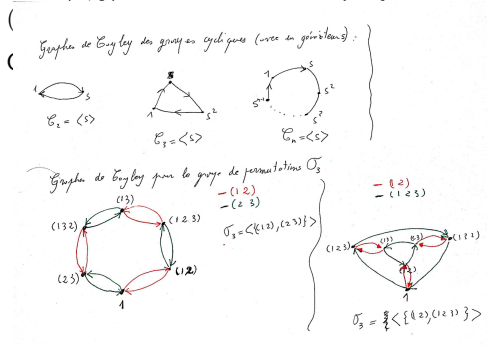 Graphes de Cayley des groupes cycliques (avec un générateur) :
1 s
C₂ = <s>
s
1 s²
C₃ = <s>
1 s
sⁿ⁻¹ s²
s³
Cₙ = <s>
Graphes de Cayley pour le groupe de permutations σ₃
— (1 2)
— (2 3)
σ₃ = <{(12), (23)}>
(13)
(132) (123)
(23) (12)
1
— (12)
— (123)
(123) (13) (23) (132)
(12)
1
σ₃ = <{(12), (123)}>